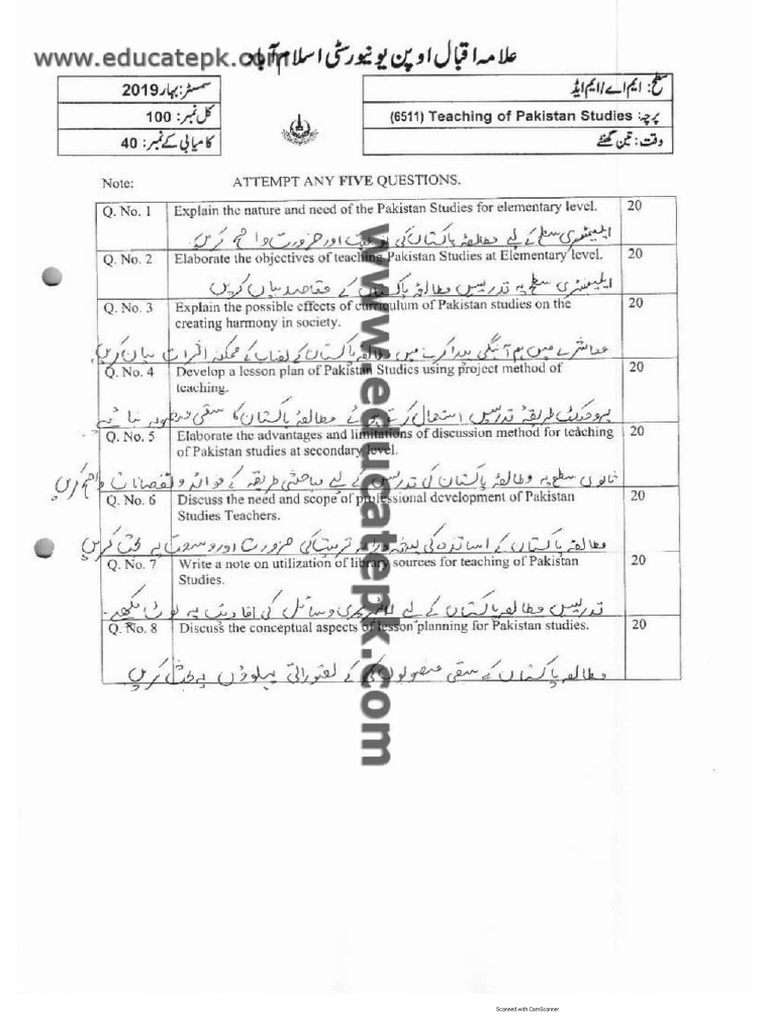 علامہ اقبال اوپن یونیورسٹی اسلام آباد
www.educatepk.com
سطح: ایم اے/ایم ایڈ
سمسٹر: بہار 2019
پرچہ: Teaching of Pakistan Studies (6511)
کل نمبر: 100
وقت: تین گھنٹے
کامیابی کے نمبر: 40
Note: ATTEMPT ANY FIVE QUESTIONS.
Q. No. 1 Explain the nature and need of the Pakistan Studies for elementary level. 20
ایلیمنٹری سطح کے لیے مطالعہ پاکستان کی نوعیت اور ضرورت واضح کریں
Q. No. 2 Elaborate the objectives of teaching Pakistan Studies at Elementary level. 20
ایلیمنٹری سطح پہ تدریس مطالعہ پاکستان کے مقاصد بیان کریں
Q. No. 3 Explain the possible effects of curriculum of Pakistan studies on the 20
creating harmony in society.
معاشرے میں ہم آہنگی پیدا کرنے میں مطالعہ پاکستان کے نصاب کے ممکنہ اثرات بیان کریں
Q. No. 4 Develop a lesson plan of Pakistan Studies using project method of 20
teaching.
پروجیکٹ طریقۂ تدریس استعمال کرتے ہوئے مطالعہ پاکستان کا سبقی منصوبہ بنائیے
Q. No. 5 Elaborate the advantages and limitations of discussion method for teaching 20
of Pakistan studies at secondary level.
ثانوی سطح پہ مطالعہ پاکستان کی تدریس کے لیے مباحثی طریقہ کے فوائد و نقصانات واضح کریں
Q. No. 6 Discuss the need and scope of professional development of Pakistan 20
Studies Teachers.
مطالعہ پاکستان کے اساتذہ کی پیشہ ورانہ تربیت کی ضرورت اور وسعت پہ بحث کریں
Q. No. 7 Write a note on utilization of library sources for teaching of Pakistan 20
Studies.
تدریس مطالعہ پاکستان کے لیے لائبریری وسائل کی افادیت پہ نوٹ لکھیے۔
Q. No. 8 Discuss the conceptual aspects of lesson planning for Pakistan studies. 20
مطالعہ پاکستان کے سبقی منصوبوں کے تصوراتی پہلوؤں پہ بحث کریں
www.educatepk.com
Scanned with CamScanner